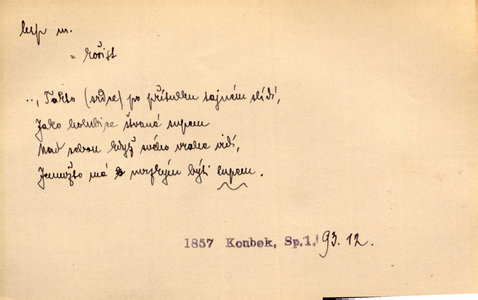 lup m.
= kořist
„Takto (srdce) po přítulku tajném slídí,
Jako holubice štvaná supem
Nad sebou když svého vraha vidí,
Jemužto má býti lupem.
1857 Koubek, Sp.1. 93. 12.